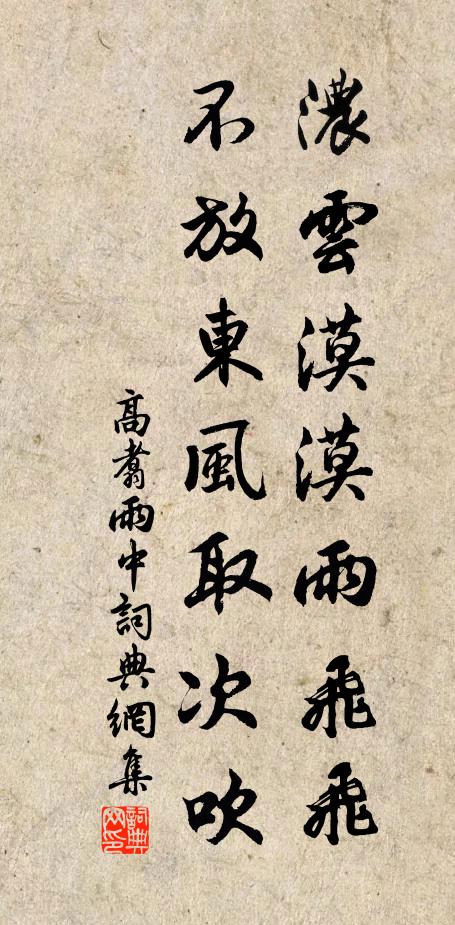 濃雲漠漠雨飛飛
不放東風取次吹
高翥雨中詞典網集
詞典網印